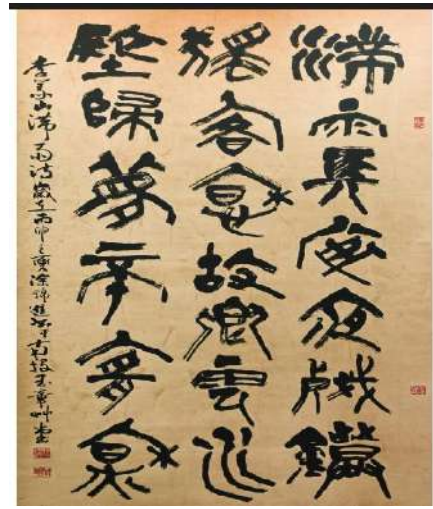 滯雨長安夜殘鐙
獨客愁故鄉雲水
墬歸夢不宜秋
李義山滯雨詩歲在丙申之